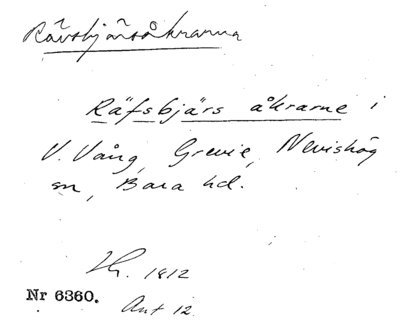 Rävsbjärsåkrarna
Räfsbjärs åkrarne i
V. Vång, Grevie, Nevishög
sn, Bara hd.
1812
Nr 6360. Ant 12.